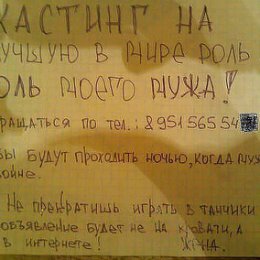 КАСТИНГ НА
ЛУЧШУЮ В МИРЕ РОЛЬ
ОЛЬ МОЕГО МУЖА!
РАЩАТЬСЯ ПО ТЕЛ.: 8 951 565 54
БЫ БУДУТ ПРОХОДИТЬ НОЧЬЮ, КОГДА МУЖ
ОЙНЕ.
НЕ ПРЕКРАТИШЬ ИГРАТЬ В ТАНЧИКИ
ОБЪЯВЛЕНИЕ БУДЕТ НЕ НА КРОВАТИ, А
В ИНТЕРНЕТЕ! ЖЕНА.